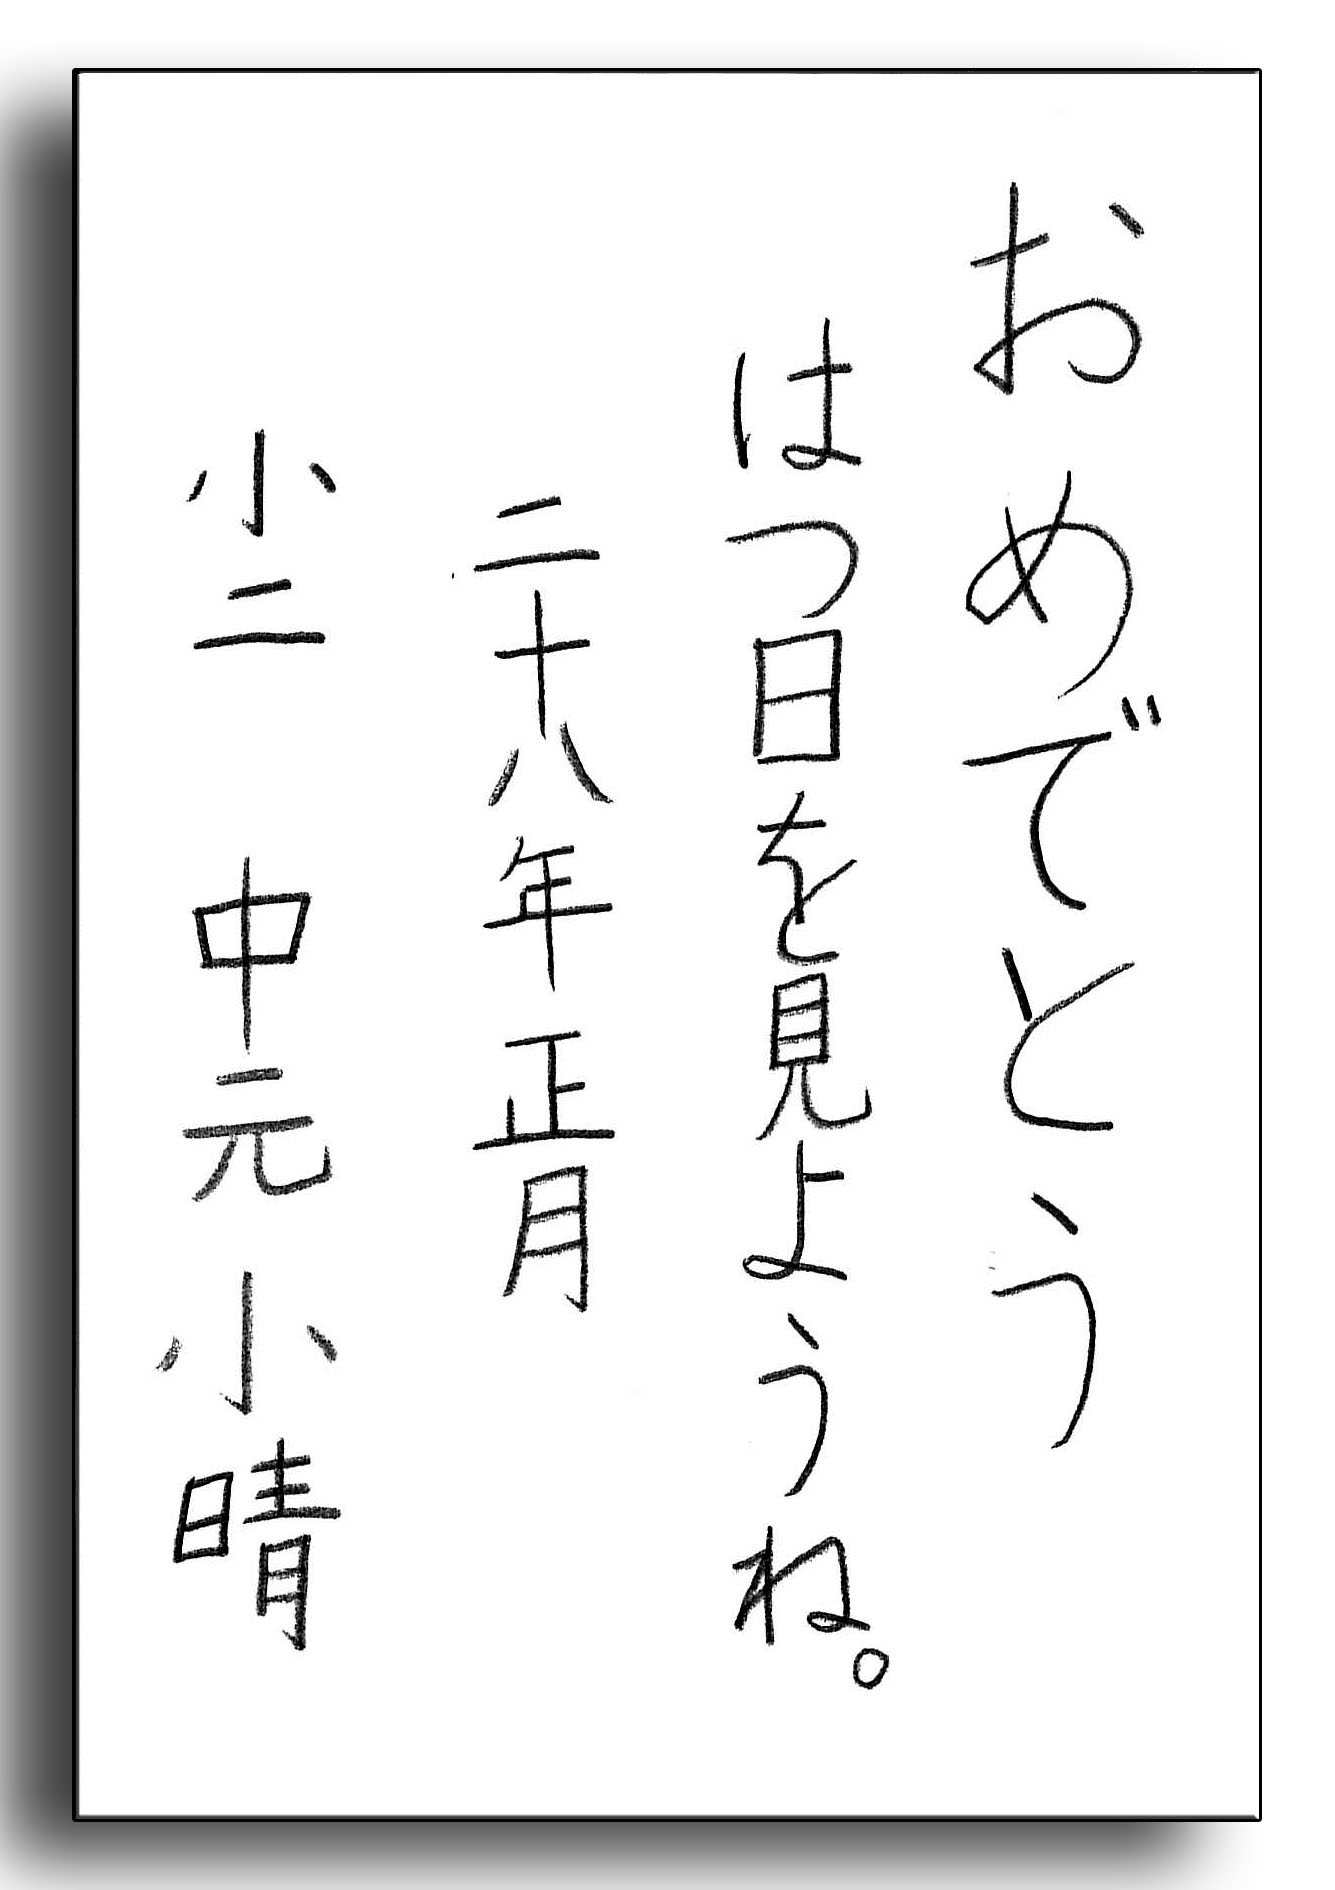 おめでとう
はつ日を見ようね。
二十八年正月
小二 中元小晴